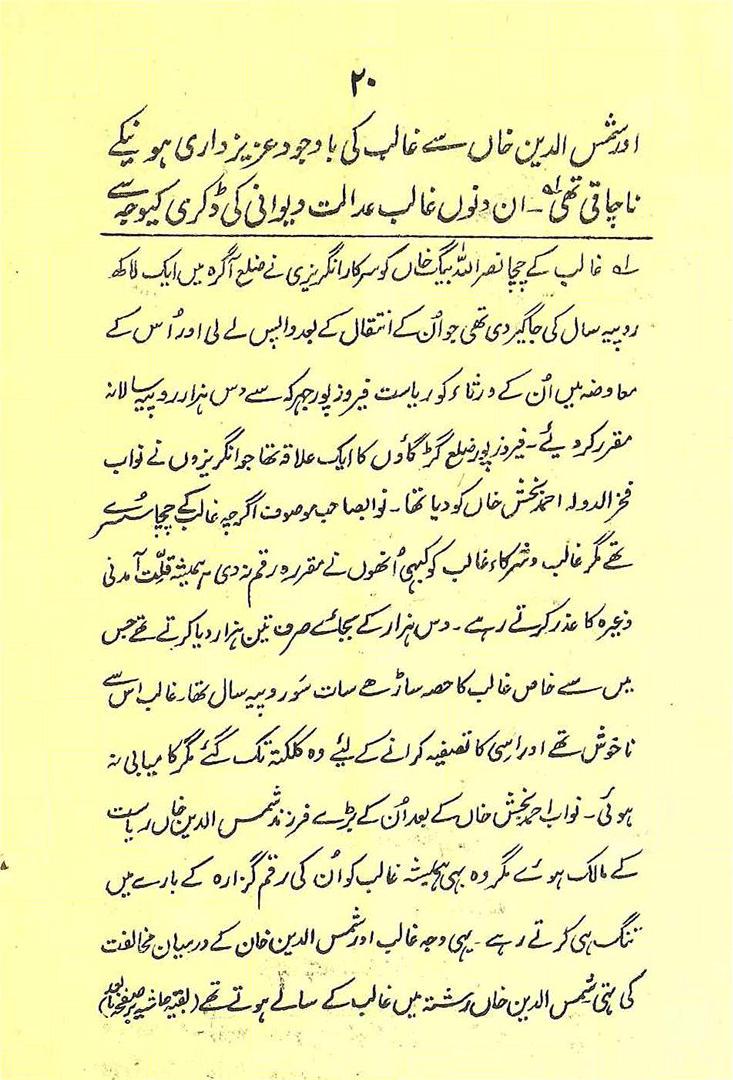 ۲۰
اور شمس الدین خاں سے غالب کی باوجود عزیز داری ہونیکے
ناچاقی تھی لہ۔ ان دنوں غالب عدالت دیوانی کی ڈکری کیوجہ سے
لہ غالب کے چچا نصر اللہ بیگ خاں کو سرکار انگریزی نے ضلع آگرہ میں ایک لاکھ
روپیہ سال کی جاگیر دی تھی جو اُن کے انتقال کے بعد واپس لے لی اور اُس کے
معاوضہ میں اُن کے ورثاء کو ریاست فیروز پور جہرکہ سے دس ہزار روپیہ سالانہ
مقرر کر دیئے۔ فیروز پور ضلع گڑ گاؤں کا ایک علاقہ تھا جو انگریزوں نے نواب
فخر الدولہ احمد بخش خاں کو دیا تھا۔ نوابصاحب موصوف اگرچہ غالب کے چچا سُسرے
تھے مگر غالب و شرکاء غالب کو کبھی اُنھوں نے مقررہ رقم نہ دی ہمیشہ قلّت آمدنی
وغیرہ کا عذر کرتے رہے۔ دس ہزار کے بجائے صرف تین ہزار دیا کرتے تھے جس
میں سے خاص غالب کا حصہ ساڑھے سات سَو روپیہ سال تھا۔ غالب اس سے
ناخوش تھے اور اِسی کا تصفیہ کرانے کے لیئے وہ کلکتہ تک گئے مگر کامیابی نہ
ہوئی۔ نواب احمد بخش خاں کے بعد اُن کے بڑے فرزند شمس الدین خاں ریاست
کے مالک ہوئے مگر وہ بہی ہمیشہ غالب کو اُن کی رقم گزارہ کے بارے میں
تنگ ہی کرتے رہے۔ یہی وجہ غالب اور شمس الدین خان کے درمیان مخالفت
کی تہی شمس الدین خاں رشتہ میں غالب کے سالے ہوتے تھے (بقیہ حاشیہ بر صفحہ مابعد)